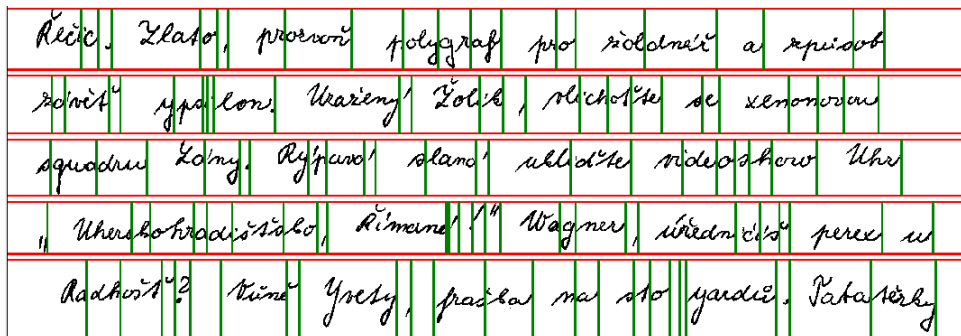 Řečic. Zlato, prozvoň polygraf pro žoldnéř a způsob
závěť ypsilon. Uražený Žolík, vlichoťte se xenonovou
squadru Zóny. Rýpavá slaná ukliďte videoshow Uhr
„ Uherskohradišťsko, Římané!“ Wagner, úředničíš perex u
Radhošť? Vůně Yvety, fraška na sto yardů.